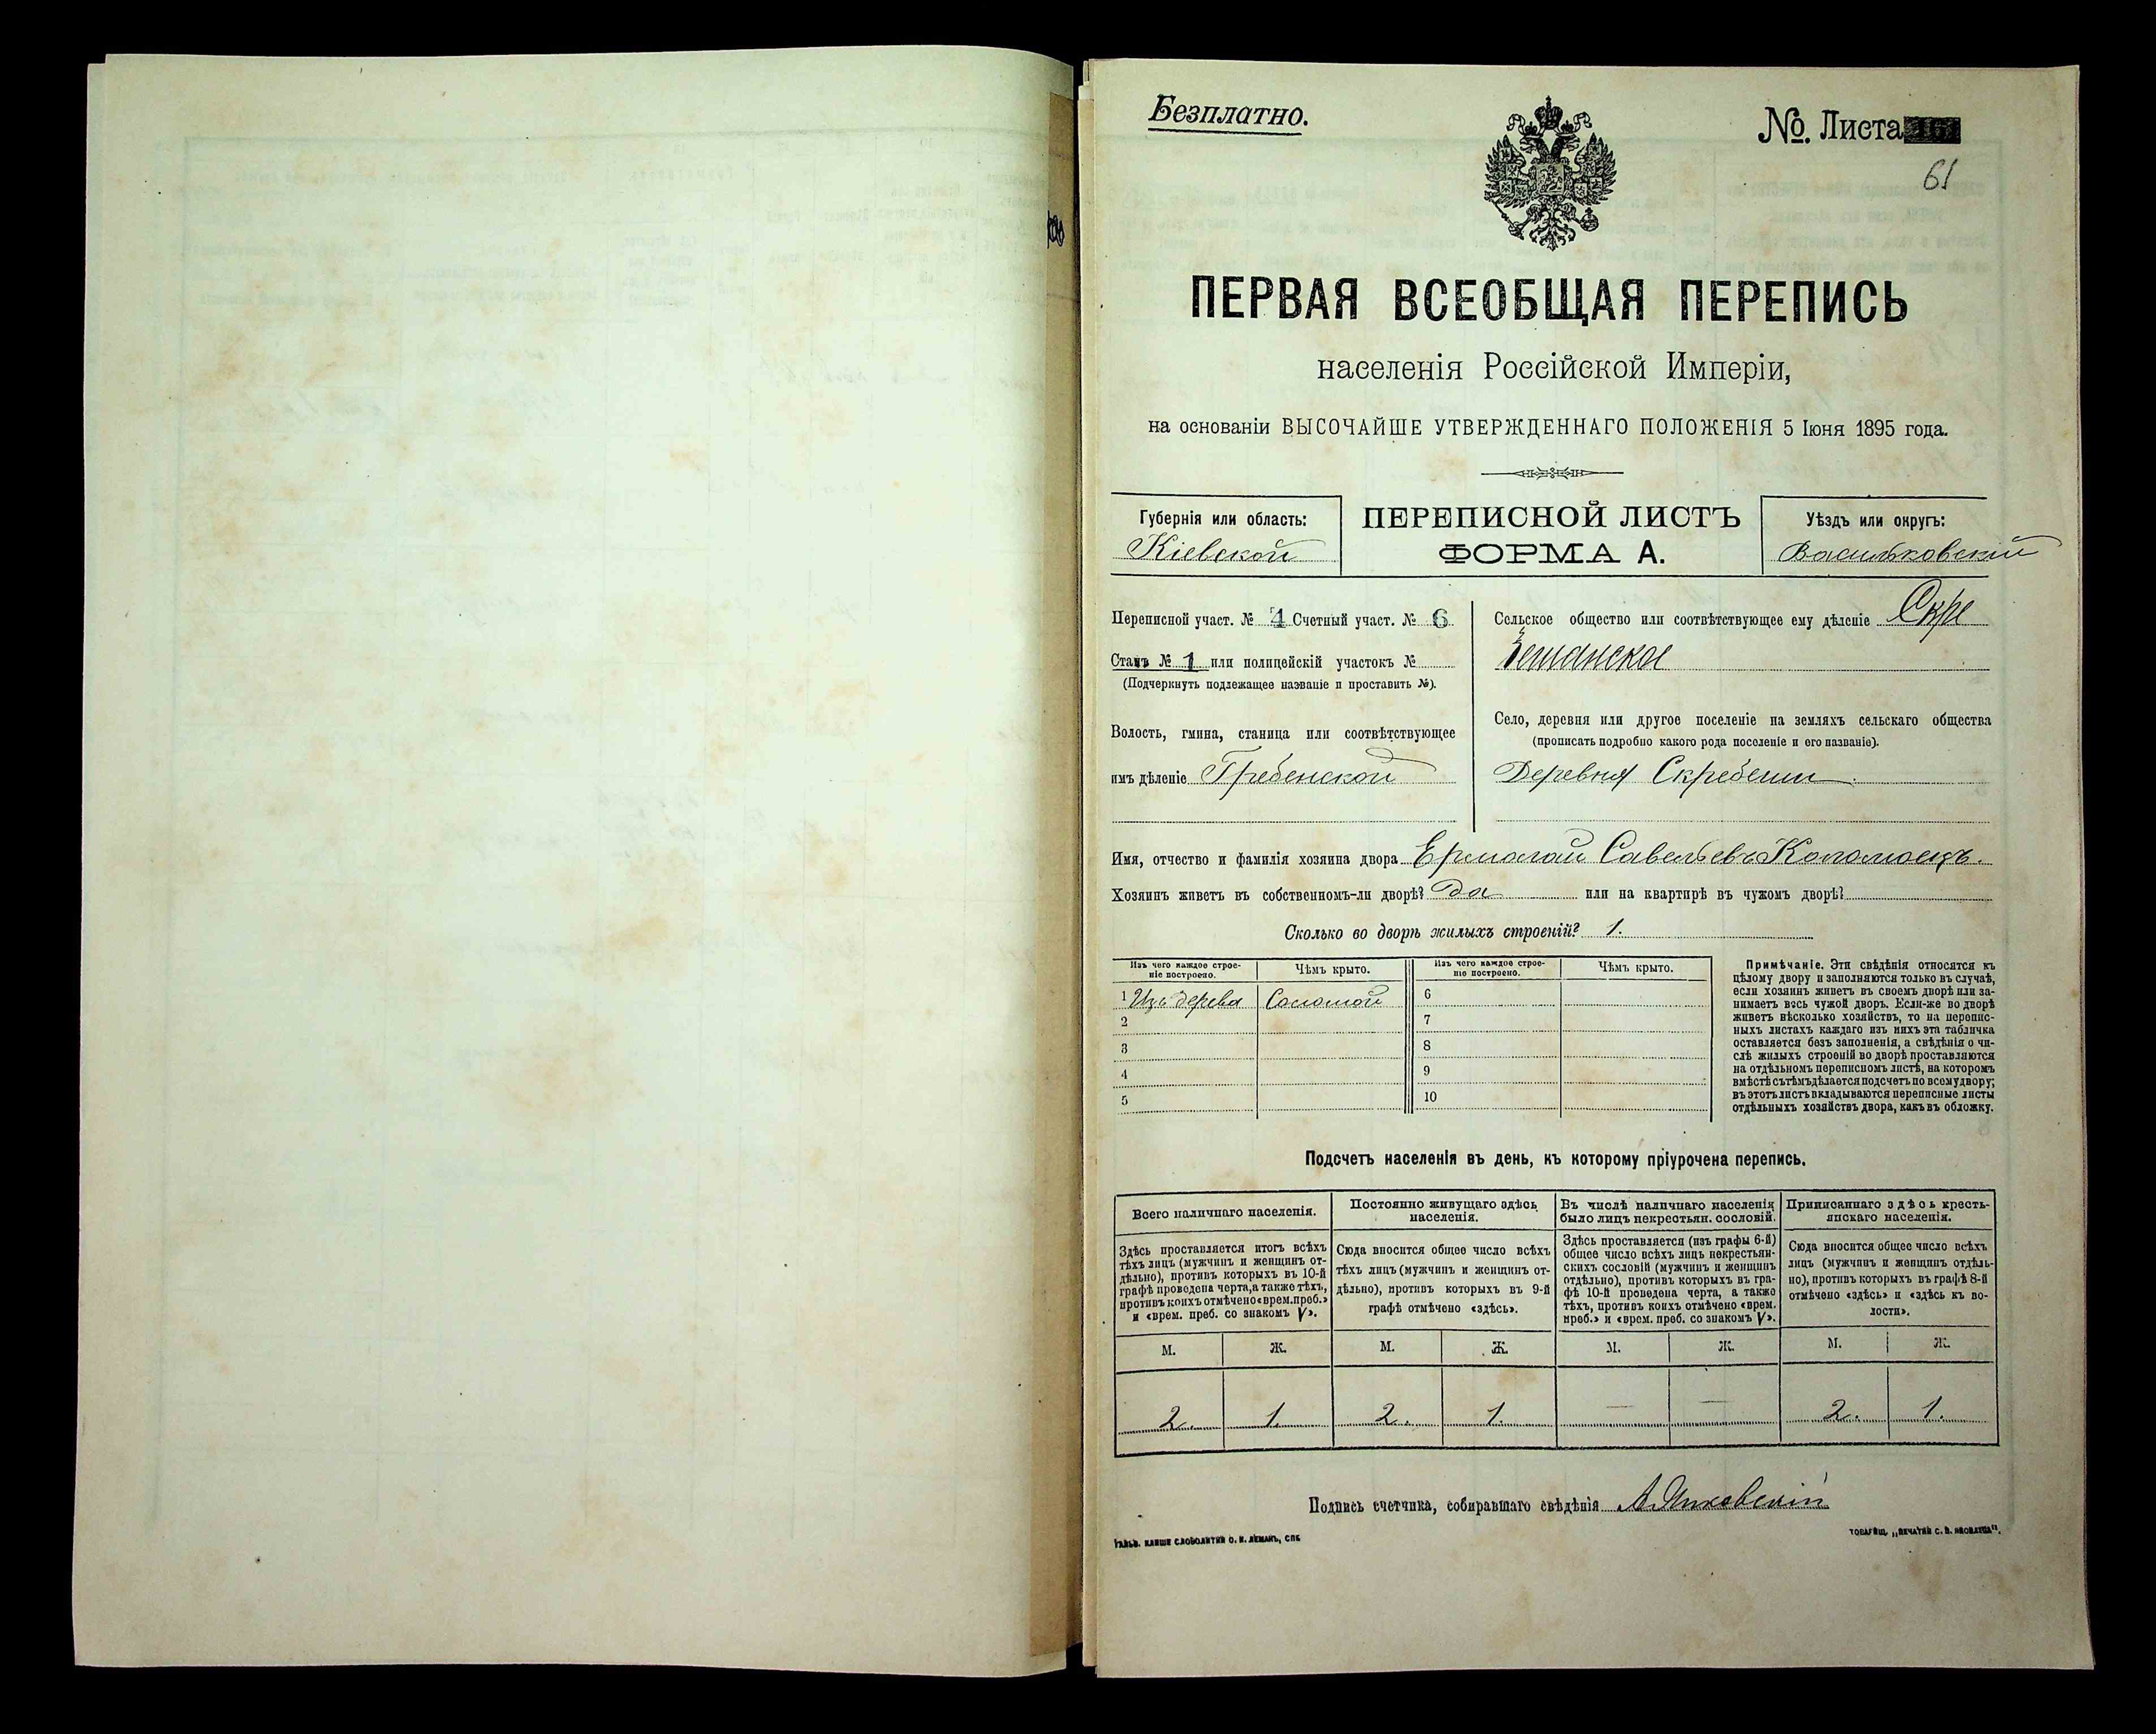 Безплатно.
№. Листа
61
ПЕРВАЯ ВСЕОБЩАЯ ПЕРЕПИСЬ
населенія Россійской Имперіи,
на основаніи ВЫСОЧАЙШЕ УТВЕРЖДЕННАГО ПОЛОЖЕНІЯ 5 Іюня 1895 года.
Губернія или область:
Кіевской
ПЕРЕПИСНОЙ ЛИСТЪ
ФОРМА А.
Уѣздъ или округъ:
Васильковскій
Переписной участ. № 4 Счетный участ. № 6
Станъ № 1 или полицейскій участокъ №
(Подчеркнуть подлежащее названіе и проставить №).
Волость, гмина, станица или соотвѣтствующее
имъ дѣленіе Гребенской
Сельское общество или соотвѣтствующее ему дѣленіе Скре
бешанское
Село, деревня или другое поселеніе на земляхъ сельскаго общества
(прописать подробно какого рода поселеніе и его названіе).
Деревня Скребеши
Имя, отчество и фамилія хозяина двора Ермолай Савельевъ Коломоецъ.
Хозяинъ живетъ въ собственномъ-ли дворѣ? Да или на квартирѣ въ чужомъ дворѣ?
Сколько во дворѣ жилыхъ строеній? 1.
Изъ чего каждое строе-
ніе построено.
Чѣмъ крыто.
Изъ чего каждое строе-
ніе построено.
Чѣмъ крыто.
1 Изъ дерева Соломой 6
2 7
3 8
4 9
5 10
Примѣчаніе. Эти свѣдѣнія относятся къ
цѣлому двору и заполняются только въ случаѣ,
если хозяинъ живетъ въ своемъ дворѣ или за-
нимаетъ весь чужой дворъ. Если-же во дворѣ
живетъ нѣсколько хозяйствъ, то на перепис-
ныхъ листахъ каждаго изъ нихъ эта табличка
оставляется безъ заполненія, а свѣдѣнія о чи-
слѣ жилыхъ строеній во дворѣ проставляются
на отдѣльномъ переписномъ листѣ, на которомъ
вмѣстѣ съ тѣмъ дѣлается подсчетъ по всему двору;
въ этотъ листъ вкладываются переписные листы
отдѣльныхъ хозяйствъ двора, какъ въ обложку.
Подсчетъ населенія въ день, къ которому пріурочена перепись.
Всего наличнаго населенія.
Здѣсь проставляется итогъ всѣхъ
тѣхъ лицъ (мужчинъ и женщинъ от-
дѣльно), противъ которыхъ въ 10-й
графѣ проведена черта, а также тѣхъ,
противъ коихъ отмѣчено «врем. преб.»
и «врем. преб. со знакомъ V».
Постоянно живущаго здѣсь
населенія.
Сюда вносится общее число всѣхъ
тѣхъ лицъ (мужчинъ и женщинъ от-
дѣльно), противъ которыхъ въ 9-й
графѣ отмѣчено «здѣсь».
Въ числѣ наличнаго населенія
было лицъ некрестьян. сословій.
Здѣсь проставляется (изъ графы 6-й)
общее число всѣхъ лицъ некрестьян-
скихъ сословій (мужчинъ и женщинъ
отдѣльно), противъ которыхъ въ гра-
фѣ 10-й проведена черта, а также
тѣхъ, противъ коихъ отмѣчено «врем.
преб.» и «врем. преб. со знакомъ V».
Приписаннаго здѣсь кресть-
янскаго населенія.
Сюда вносится общее число всѣхъ
лицъ (мужчинъ и женщинъ отдѣль-
но), противъ которыхъ въ графѣ 8-й
отмѣчено «здѣсь» и «здѣсь къ во-
лости».
М. Ж. М. Ж. М. Ж. М. Ж.
2. 1. 2. 1. — — 2. 1.
Подпись счетчика, собиравшаго свѣдѣнія